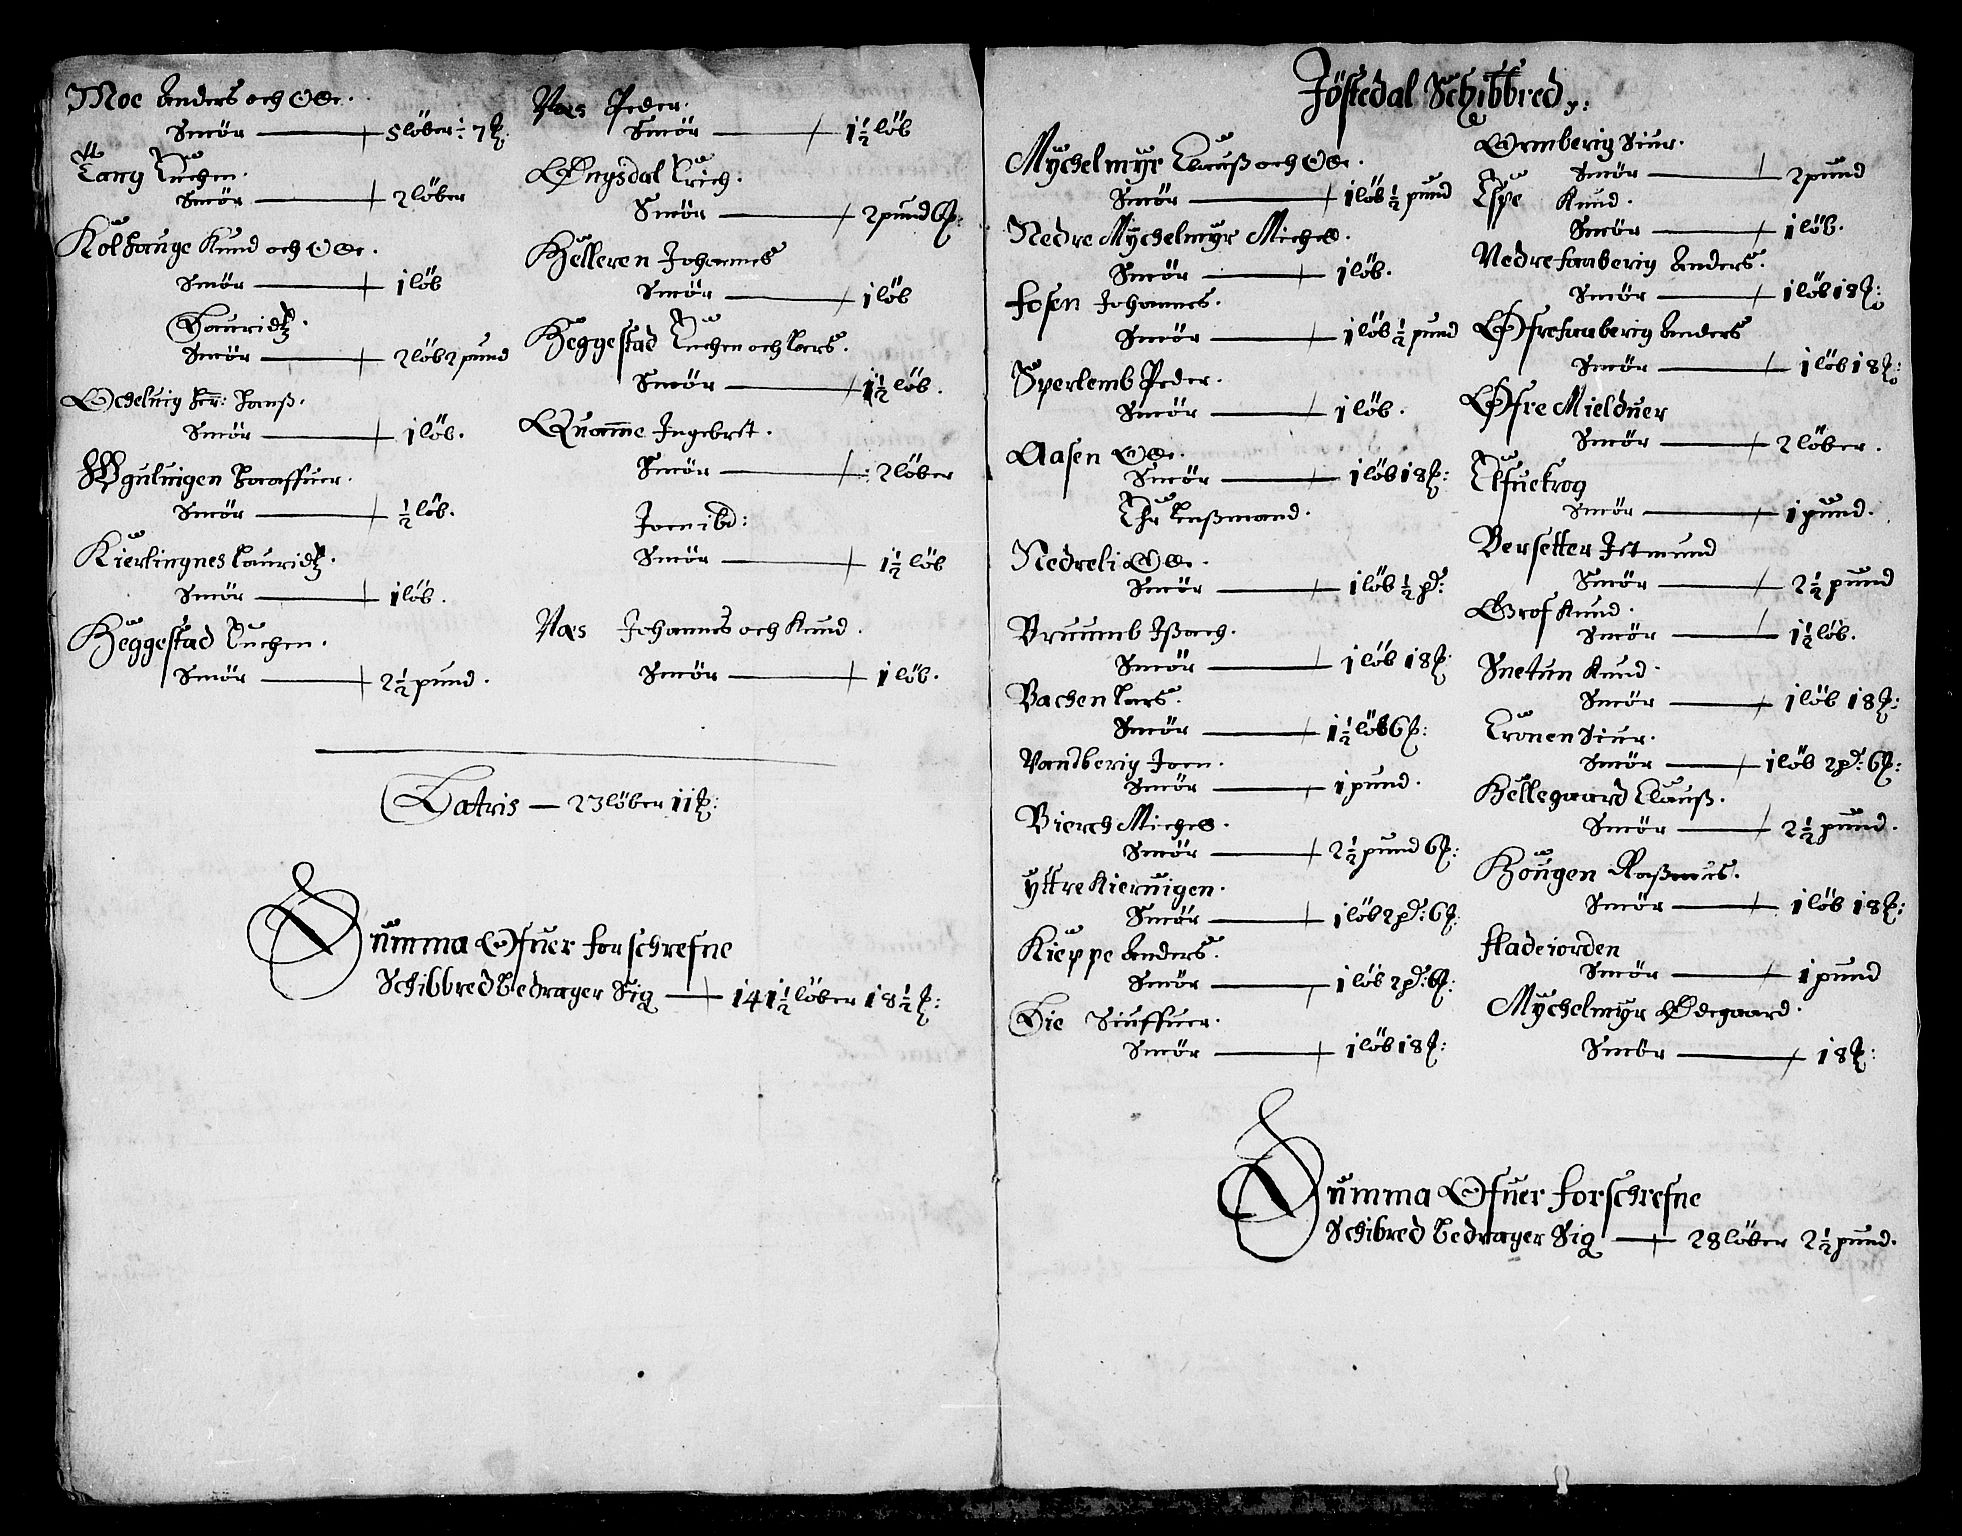 Moe Anders och Olle.
Smör — 5 löber ÷ 7 ℔:
Tang Tuchen.
Smör — 2 löber
Kolhauge Knud och Olle.
Smör — 1 löb
Lauridtz.
Smör — 2 löb 2 pund
Ochelvig hr: Hanß.
Smör — 1 löb.
Ugulvigen Haaffuer.
Smör — ½ löb.
Kierlingnes Lauridtz.
Smör — 1 löb.
Heggestad Tuchen.
Smör — 2½ pund.
Næs Peder.
Smör — 1½ löb
Engsdal Erich.
Smör — 2 pund 6 ℔:
Helleren Johannes
Smör — 1 löb
Heggestad Tuchen och Lars.
Smör — 1½ löb.
Quamme Ingebret.
Smör — 2 löber
Joen ibd:
Smör — 1½ löb
Næs Johannes och Knud.
Smör — 1 löb.
Latris — 23 löber 11 ℔:
Summa Ofuer forschrefne
Schibbred Bedrager Sig — 141½ löber 18½ ℔:
Jöstedal Schibbred:
Mychelmyr Clauß och Olle.
Smör — 1 löb ½ pund
Nedre Mychelmyr Michel.
Smör — 1 löb.
Fosen Johannes.
Smör — 1 löb ½ pund
Sperlemb Peder.
Smör — 1 löb.
Aasen Olle.
Smör — 1 löb 18 ℔:
Chr Lenßmand.
Nedreli Olle.
Smör — 1 löb ½ pd:
Bruumb Ißach.
Smör — 1 löb 18 ℔:
Bachen Lars.
Smör — 1½ löb 6 ℔:
Vandberig Joen.
Smör — 1 pund.
Bierch Michel.
Smör — 2½ pund 6 ℔:
Yttre Kieruigen.
Smör — 1 löb 2 pd: 6 ℔:
Kieppe Anders.
Smör — 1 löb 2 pd: 6 ℔:
Lie Siuffuer.
Smör — 1 löb 18 ℔:
Ormberig Siur.
Smör — 2 pund
Espe Knud.
Smör — 1 löb.
Nedrefaaberig Anders.
Smör — 1 löb 18 ℔:
Øfrefaaberig Anders
Smör — 1 löb 18 ℔:
Øfre Mielduer
Smör — 2 löber.
Elfuekrog
Smör — 1 pund.
Bersetter Jetmund
Smör — 2½ pund
Grof Knud.
Smör — 1½ löb.
Snetun Knud.
Smör — 1 löb 18 ℔:
Cronen Siur.
Smör — 1 löb 2 pd: 6 ℔:
Hellegaard Clauß.
Smör — 2½ pund.
Hougen Raßmus.
Smör — 1 löb 18 ℔:
Fladeiorden
Smör — 1 pund
Mychelmyr Ødegaard.
Smör — 18 ℔:
Summa Ofuer forschrefne
Schibred Bedrager Sig — 28 löber 2½ pund.